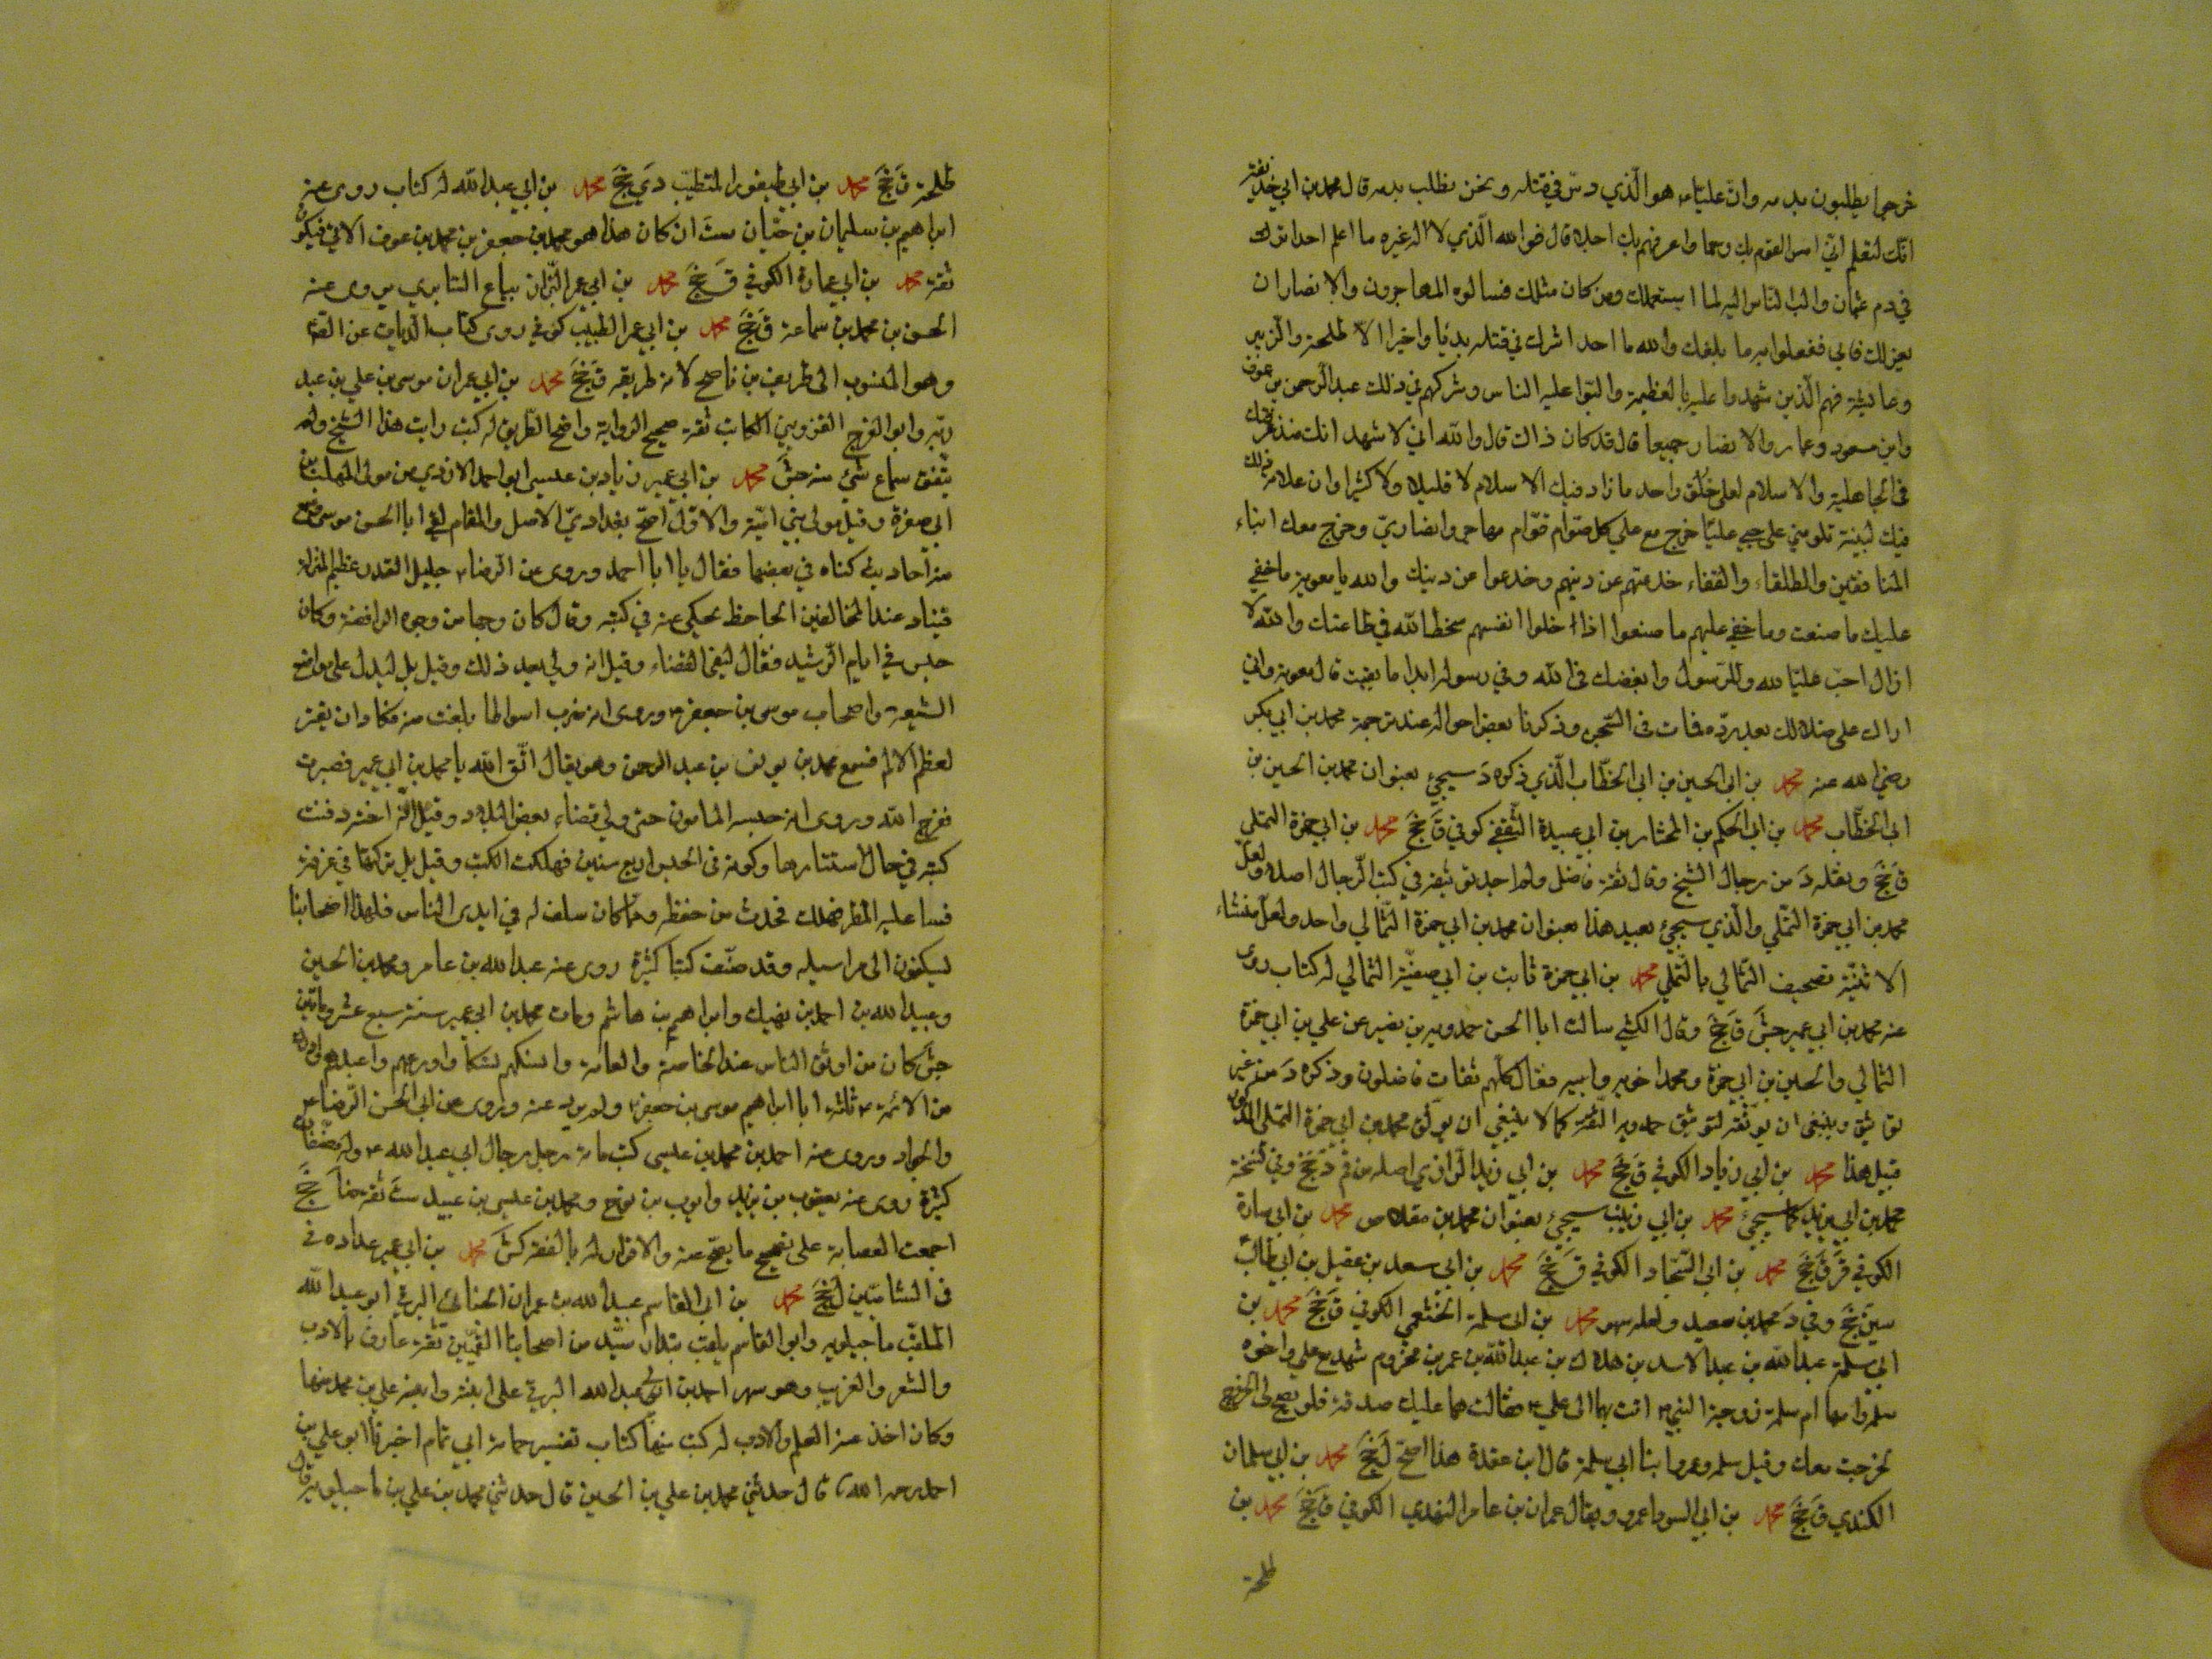 خرجوا يطلبون بدمه وان عليّا ع هو الّذي دسّ في قتله ونحن نطلب بدمه قال محمد بن ابي حذيفة
انّك لتعلم انّي امس القوم بك رحما واعرفهم بك احد قال فوالله الّذي لا اله غيره ما اعلم احدا شرك
في دم عثمان والب الناس اليه لما استعملك ومن كان مثلك فسالوه المهاجرون والانصار ان
يعزلك فابي ففعلوا به ما بلغك والله ما احد اشرك في قتله بديّا واخيرا الا طلحة والزبير
وعايشة فهم الّذين شهدوا عليه بالعظيمة والبوا عليه الناس وشركهم في ذلك عبد الرحمن بن عوف
وابن مسعود وعمار والانصار جميعا قال قد كان ذاك قال والله اني لاشهد انك منذ عرفتك
في الجاهلية والاسلام لعلى خلق واحد ما زاد فيك الاسلام لا قليلا ولا كثيرا وان علامة ذلك
فيك لبينة تلومني على حبي عليّا خرج مع علي كل صوّام قوّام مهاجري وانصاري وخرج معك ابناء
المنافقين والطلقاء والعتقاء خدعتهم عن دينهم وخدعوك عن دينك والله يا معوية ما خفي
عليك ما صنعت وما خفي عليهم ما صنعوا اذا احلوا انفسهم سخط الله في طاعتك والله لا
ازال احب عليّا لله وللرسول وابغضك في الله وفي رسوله ابدا ما بقيت قال معوية واني
اراك على ضلالك بعد بردّه فمات في السّجن وذكرنا بعض احواله عند ترجمة محمد بن ابي بكر
رضي الله عنه محمد بن ابي الحسين بن ابي الخطّاب الّذي ذكره د سيجئ بعنوان محمد بن الحسين بن
ابي الخطّاب محمد بن ابي الحكم بن المختار بن ابي عبيدة الثّقفي كوفي ق جخ محمد بن ابي حمزة التملي
ق جخ ونقله د من رجال الشيخ وقال ثقة فاضل ولم اجد توثيقه في كتب الرّجال اصلا ولعلّ
محمد بن ابي حمزة التّملي والّذي سيجئ بعيد هذا بعنوان محمد بن ابي حمزة الثّمالي واحد ولعل منشاء
الاثنيّة تصحيف الثمالي بالتّملي محمد بن ابي حمزة ثابت بن ابي صفيّة الثمالي له كتاب روى
عنه محمد بن ابي عمير جش ق جخ وقال الكشي سالت ابا الحسن حمدويه بن نصير عن علي بن ابي حمزة
الثمالي والحسين بن ابي حمزة ومحمد اخويه وابيه فقال كلهم ثقات فاضلون وذكره د من غير
توثيق وينبغي ان يوثّقه لتوثيق حمدويه الثّقة كما لا ينبغي ان يوثّق محمد بن ابي حمزة التملي المذكور
قبيل هذا محمد بن ابي زياد الكوفي ق جخ محمد بن ابي زيد الرّازي اصله من قم د جخ وفي نسخة
محمد بن ابي يزيد كما سيجئ محمد بن ابي زينب سيجئ بعنوان محمد بن مقلاص محمد بن ابي سارة
الكوفي قر ق جخ محمد بن ابي السّجاد الكوفي ق جخ محمد بن ابي سعد بن عقيل بن ابي طالب
سين جخ وفي د محمد بن سعيد ولعله سهو محمد بن ابي سلمة الخثعمي الكوفي ق جخ محمد بن
ابي سلمة عبد الله بن عبد الاسد بن هلال بن عبد الله بن عمر بن مخزوم شهد مع علي واخوه
سلمة وامهما ام سلمة زوجة النبي ص اتت بهما الى علي ع فقالت هما عليك صدقة فلو يصح لي الخروج
لخرجت معك وقيل سلمة وعمرو ابنا ابي سلمة قال ابن عقدة هذا اصح ل جخ محمد بن ابي سلمان
الكندي ق جخ محمد بن ابي السوداء عمرو ويقال عمران بن عامر النهدي الكوفي ق جخ محمد بن
طلحة
طلحة ق جخ محمد بن ابي طيفور المتطبّب دي جخ محمد بن ابي عبد الله له كتاب روى عنه
ابراهيم بن سليمان بن حيّان ست ان كان هذا هو محمد بن جعفر بن محمد بن عون الاتي فيكون
ثقة محمد بن ابي عمارة الكوفي ق جخ محمد بن ابي عمر البزّاز بياع السابري يروى عنه
الحسن بن محمد بن سماعة ق جخ محمد بن ابي عمر الطبيب كوفي روى كتاب الديات عن الصّ
وهو المنسوب الى ظريف بن ناصح لانه طريقه ق جخ محمد بن ابي عمران موسى بن علي بن عبد
ربّه وابو الفرج القزويني الكاتب ثقة صحيح الرواية واضح الطّريق له كتب رايت هذا الشيخ ولم
يتّفق سماع شئ منه جش محمد بن ابي عمير زياد بن عيسى ابو احمد الازدي من موالي المهلب بن
ابي صفرة وقيل مولى بني اميّة والاوّل اصحّ بغدادي الاصل والمقام لقي ابا الحسن موسى ع سمع
منه احاديث كناه في بعضها فقال يا ابا احمد وروى عن الرّضا ع جليل القدر عظيم المنزلة
فينا وعند المخالفين الجاحظ يحكي عنه في كتبه وقال كان وجها من وجوه الرافضة وكان
حبس في ايام الرّشيد فقال ليلي القضاء وقيل انه ولي بعد ذلك وقيل بل ليدل على مواضع
الشيعة واصحاب موسى بن جعفر ع وروى انه ضرب اسواطا بلغت منه فكاد ان يقر
لعظم الالم فسمع محمد بن يونس بن عبد الرحمن وهو يقال اتّق الله يا محمد بن ابي عمير فصبرت
ففرج الله وروى انه حبسه المامون حتى ولي قضاء بعض البلاد وقيل انّ اخته دفنت
كتبه في حال استتارها وكونه في الحبس اربع سنين فهلكت الكتب وقيل بل تركها في غرفة
فسال عليه المطر فهلك فحدث من حفظه وممّا كان سلف له في ايدى الناس فلهذا اصحابنا
يسكنون الى مراسيله وقد صنّف كتبا كثيرة روى عنه عبد الله بن عامر ومحمد بن الحسين
وعبيد الله بن احمد بن نهيك وابراهيم بن هاشم ومات محمد بن ابي عمير سنة سبع عشر ومائتين
جش كان من اوثق الناس عند الخاصة والعامة وانسكهم نسكا واورعهم واعبدهم وادرك
من الائمة ع ثلثة ابا ابراهيم موسى بن جعفر ع ولم يرو عنه وروى عن ابي الحسن الرّضا ع
والجواد وروى عنه احمد بن محمد بن عيسى كتب مائة رجل رجال ابي عبد الله ع وله مصنّفات
كثيرة روى عنه يعقوب بن يزيد وايوب بن نوح ومحمد بن عيسى بن عبيد ست ثقة ضا جخ
اجمعت العصابة على تصحيح ما يصحّ عنه والاقرار له بالفقه كش محمد بن ابي عمير عداده في
في الشاميّين ل جخ محمد بن ابي القاسم عبيد الله بن عمران الجنابي البرقي ابو عبد الله
الملقّب ماجيلويه وابو القاسم يلقب بندار سيّد من اصحابنا القمّيين ثقة عارف بالادب
والشعر والغريب وهو صهر احمد بن ابي عبد الله البرقي على ابنته وابنه علي بن محمد منها
وكان اخذ عنه العلم والادب له كتب منها كتاب تفسير حماسة ابي تمام اخبرنا ابو علي بن
احمد رحمه الله قال حدثني محمد بن علي بن الحسين قال حدثني محمد بن علي بن ماجيلويه قال